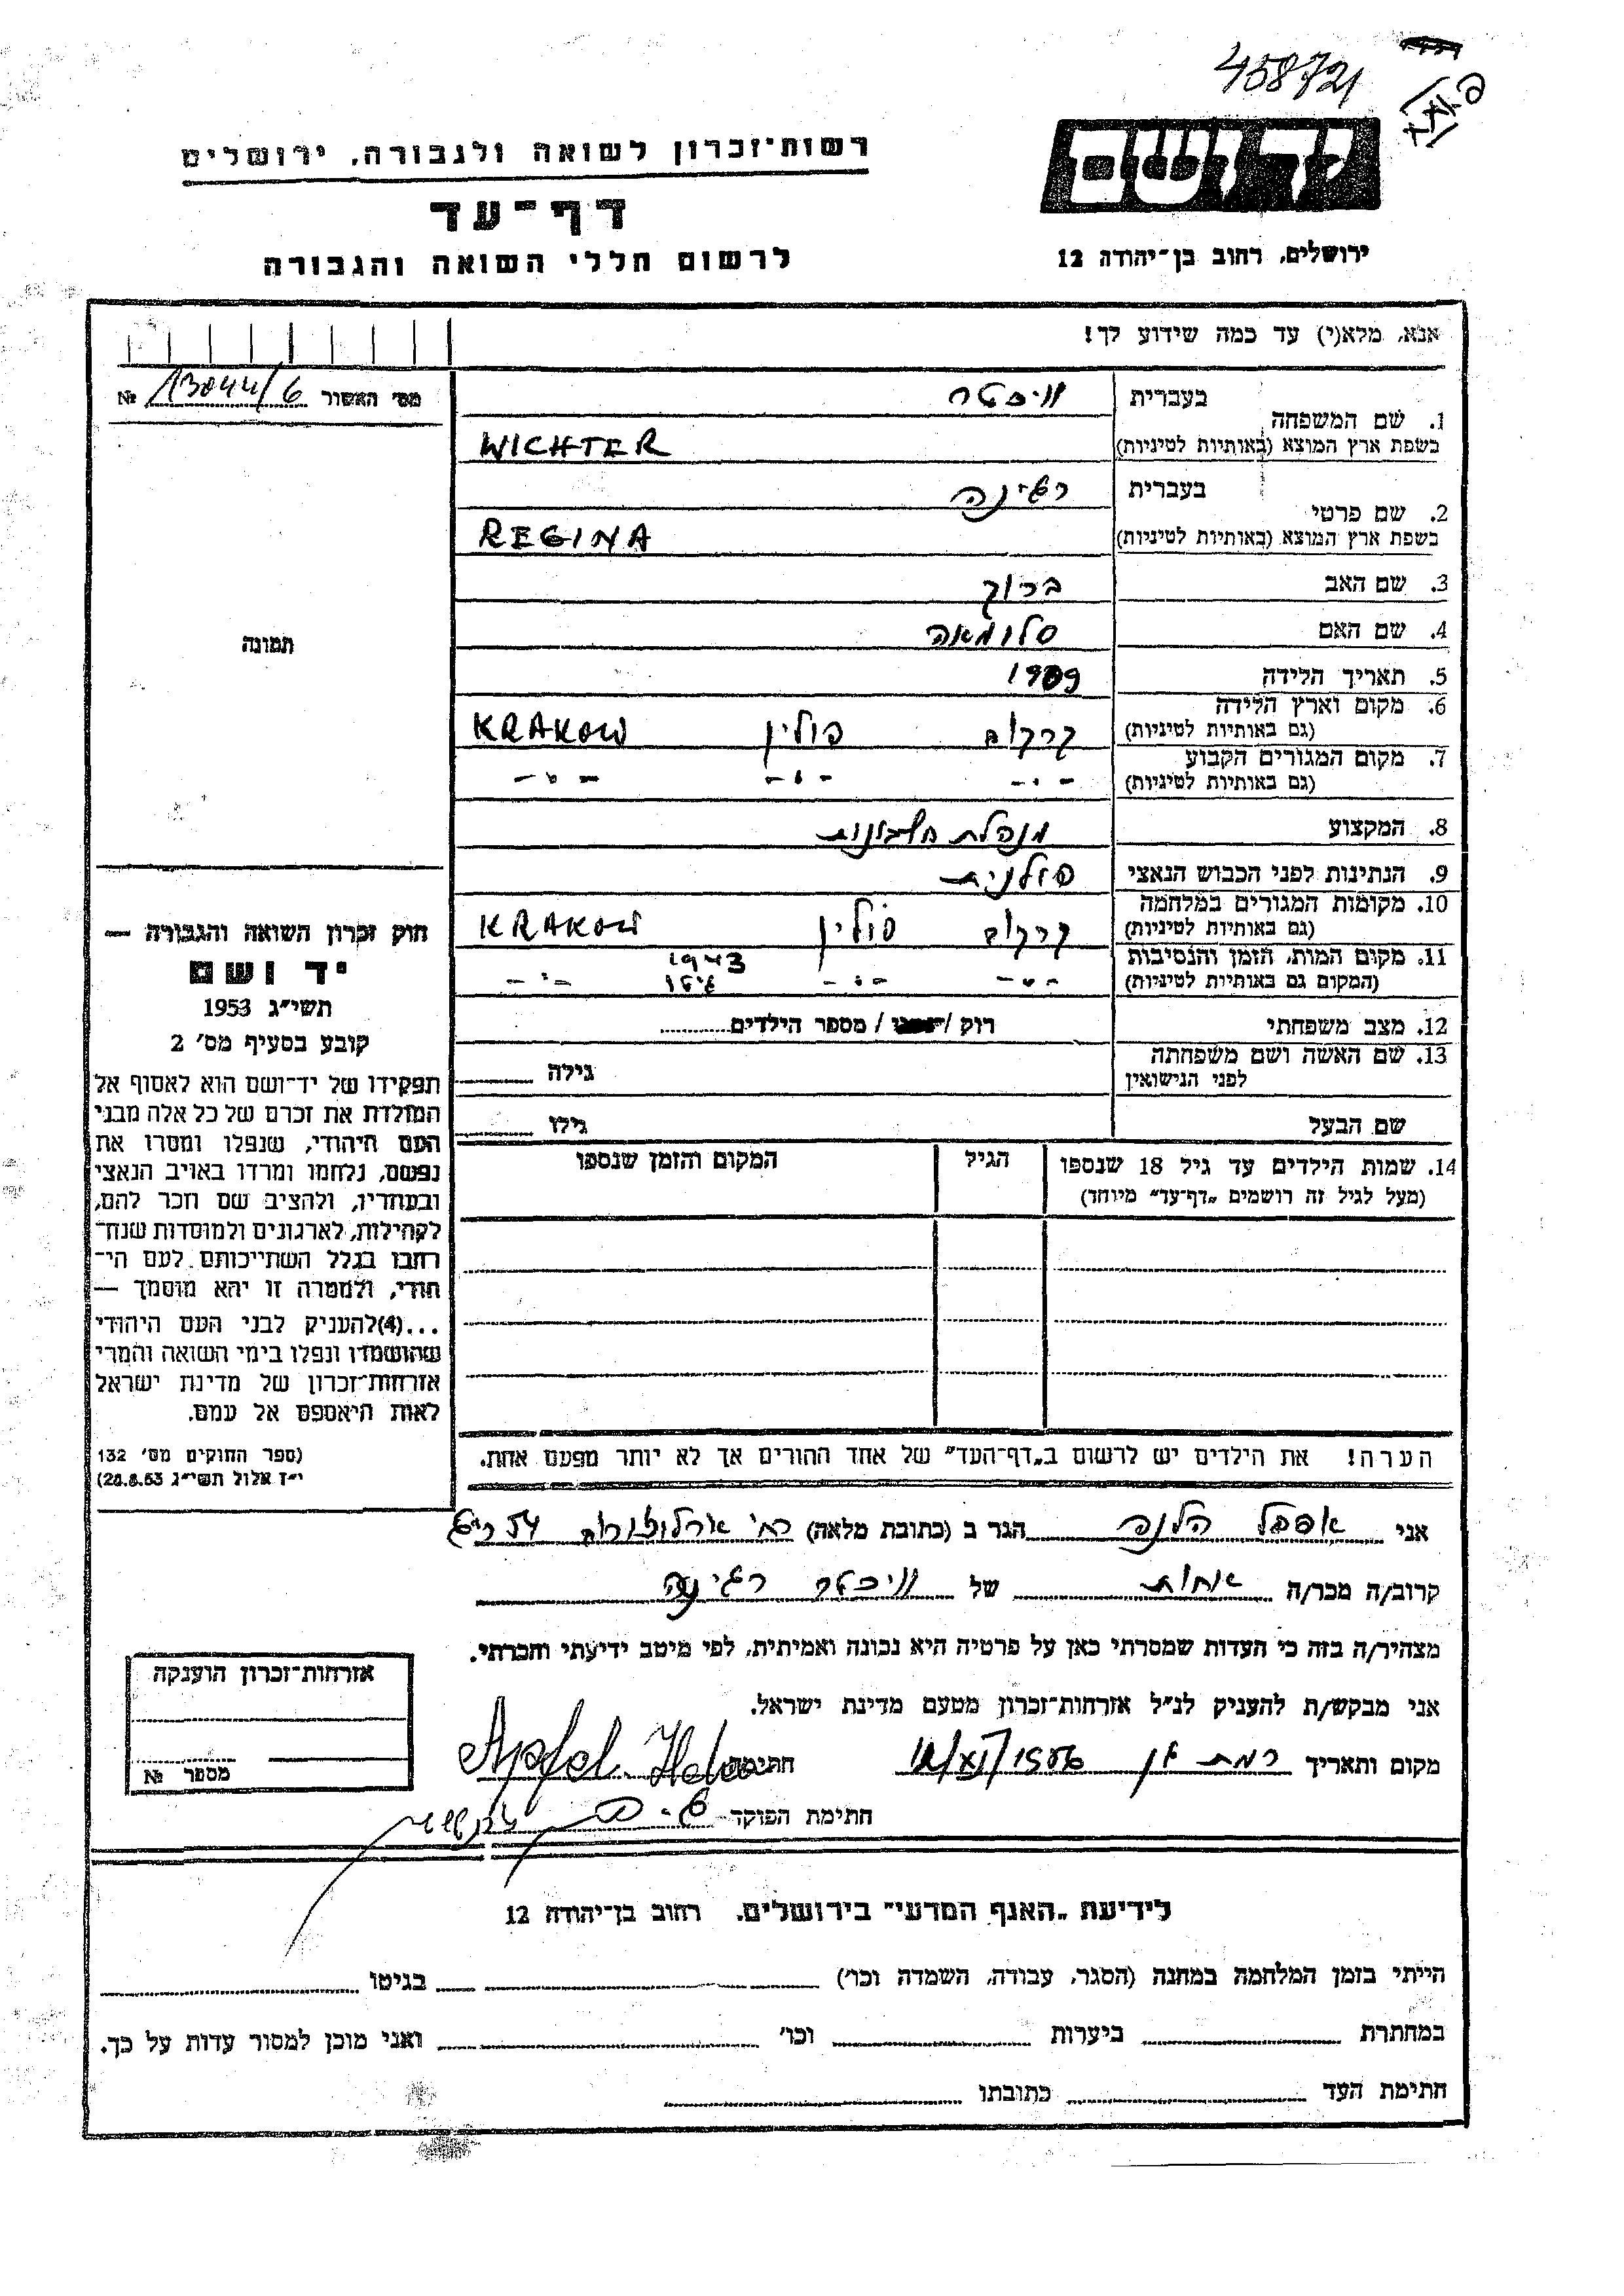 458721
רשות־זכרון לשואה ולגבורה, ירושלים
יד ושם
דף־עד
לרשום חללי השואה והגבורה
ירושלים, רחוב בן־יהודה 12
אנא, מלא(י) עד כמה שידוע לך!
מס׳ האשור 13044/6 №
1. שם המשפחה
בעברית וויכטר
בשפת ארץ המוצא (באותיות לטיניות) WICHTER
2. שם פרטי
בעברית רגינה
בשפת ארץ המוצא (באותיות לטיניות) REGINA
3. שם האב ברוך
4. שם האם סלומאה
5. תאריך הלידה 1909
6. מקום וארץ הלידה
(גם באותיות לטיניות) קרקוב פולין KRAKOW
7. מקום המגורים הקבוע
(גם באותיות לטיניות) -"- -"- -"-
8. המקצוע מנהלת חשבונות
9. הנתינות לפני הכבוש הנאצי פולנית
10. מקומות המגורים במלחמה
(גם באותיות לטיניות) קרקוב פולין KRAKOW
11. מקום המות, הזמן והנסיבות 1943
(המקום גם באותיות לטיניות) -"- -"- גיטו -"-
12. מצב משפחתי רוק / / מספר הילדים
13. שם האשה ושם משפחתה
לפני הנישואין גילה
שם הבעל גילו
14. שמות הילדים עד גיל 18 שנספו הגיל המקום והזמן שנספו
(מעל לגיל זה רושמים „דף־עד" מיוחד)
הערה! את הילדים יש לרשום ב„דף־העד" של אחד ההורים אך לא יותר מפעם אחת.
תמונה
חוק זכרון השואה והגבורה —
יד ושם
תשי״ג 1953
קובע בסעיף מס׳ 2
תפקידו של יד־ושם הוא לאסוף אל
המולדת את זכרם של כל אלה מבני
העם היהודי, שנפלו ומסרו את
נפשם, נלחמו ומרדו באויב הנאצי
ובעוזריו, ולהציב שם וזכר להם,
לקהילות, לארגונים ולמוסדות שנח־
רחבו בגלל השתייכותם לעם הי־
הודי, ולמטרה זו יהא מוסמך —
...(4)להעניק לבני העם היהודי
שהושמדו ונפלו בימי השואה והמרי
אזרחות־זכרון של מדינת ישראל
לאות היאספם אל עמם.
(ספר החוקים מס׳ 132
י״ז אלול תשי״ג 28.8.53)
אני אפפל הלנה הגר ב (כתובת מלאה) רח׳ ארלוזורוב 54 ר״ג
קרוב/ה מכר/ה אחות של וויכטר רגינה
מצהיר/ה בזה כי העדות שמסרתי כאן על פרטיה היא נכונה ואמיתית, לפי מיטב ידיעתי והכרתי.
אני מבקש/ת להעניק לנ״ל אזרחות־זכרון מטעם מדינת ישראל.
מקום ותאריך רמת גן 12/XI/1956 חתימה Apfel Helena
חתימת הפוקד
אזרחות־זכרון הוענקה
מספר №
לידיעת „האגף המדעי" בירושלים. רחוב בן־יהודה 12
הייתי בזמן המלחמה במחנה (הסגר, עבודה, השמדה וכו׳) בגיטו
במחתרת ביערות וכו׳ ואני מוכן למסור עדות על כך.
חתימת העד כתובתו